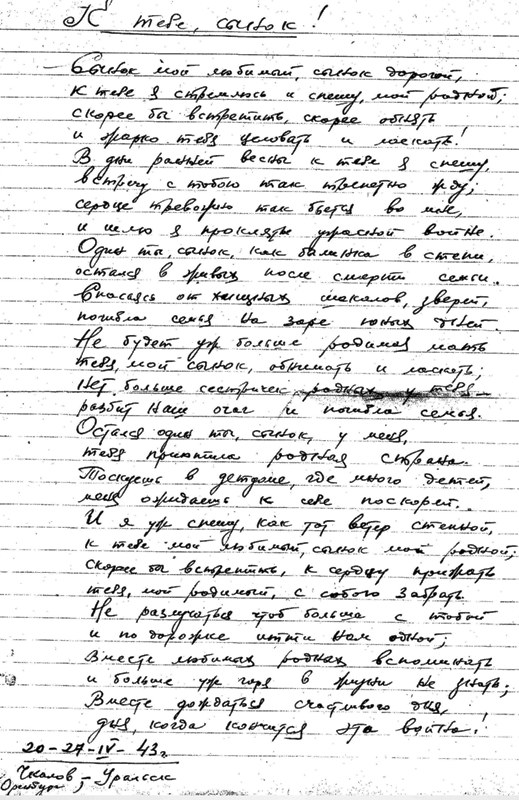 К тебе, сынок!
Сынок мой любимый, сынок дорогой,
к тебе я стремлюсь и спешу, мой родной;
скорее бы встретить, скорее обнять
и жарко тебя целовать и ласкать!
В дни ранней весны к тебе я спешу,
встречу с тобою так трепетно жду;
сердце тревожно так бьется во мне,
и шлю я проклятье ужасной войне.
Один ты, сынок, как былинка в степи,
остался в живых после смерти семьи.
Спасаясь от хищных шакалов, зверей,
погибла семья на заре юных дней.
Не будет уж больше родимая мать
тебя, мой сынок, обнимать и ласкать;
Нет больше сестричек родных у тебя
разбит наш очаг и погибла семья.
Остался один ты, сынок, у меня,
тебя приютила родная страна.
Тоскуешь в детдоме, где много детей,
меня ожидаешь к себе поскорей.
И я уж спешу, как тот ветер степной,
к тебе мой любимый, сынок мой родной;
скорее бы встретить, к сердцу прижать
тебя, мой родимый, с собою забрать
Не разлучаться чтоб больше с тобой
и по дорожке итти нам одной;
Вместе любимых родных вспоминать
и больше уж горя в жизни не знать;
Вместе дождаться счастливого дня,
дня, когда кончится эта война!
20-27-IV-43г.
Чкалов, - Уральск
Оренбург